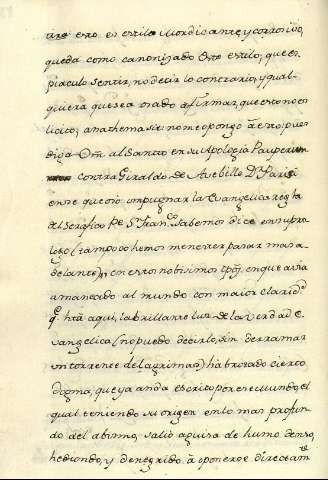 esto es estilo mordicante, y corrosivo,
queda como canonizado este estilo, que es
piaculo sentir, no decir lo contrario; y qual-
quiera que sea osado afirmar, que esto no es
licito, anathema sit: no me opongo à esto; pues
diga al Santo en su Apologìa Pauperum
contra Giraldo de Averbillo Dr Parisi
ense que osò impugnar la Evangelica regla
del Seraphico Pe Sn Franco. Sabemos dice en su pro-
logo (tampoco hemos menester pasar mas a-
delante) q en estos nobisimos tpos, en que avia
amanecido al mundo con maior claridad
q hta aqui, la brillante luz de la Verdad E-
vangelica (no puedo decirlo, sin derramar
un torrente de lagrimas) hà brotado cierto
dogma, que ya anda escrito por este mundo, el
qual teniendo su origen en lo mas profun-
do del abismo, saliò à guisa de humo denso,
hediondo, y denegrido, à oponerse directamte